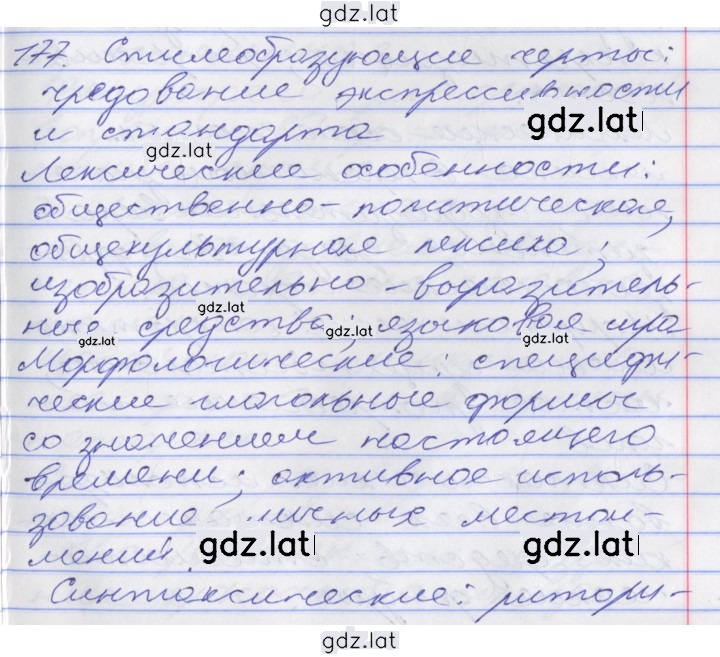 gdz.lat
177. Стилеобразующие черты:
чредование экспрессивности
gdz.lat
и стандарта
gdz.lat
Лексические особенности:
общественно-политическая,
общекультурная лексика;
изобразительно-выразитель-
gdz.lat
ные средства; языковая игра
gdz.lat
gdz.lat
Морфологические: специфи-
ческие глагольные формы
со значением настоящего
времени; активное исполь-
зование личных местои-
мений.
gdz.lat
gdz.lat
Синтаксические: ритори-
gdz.lat